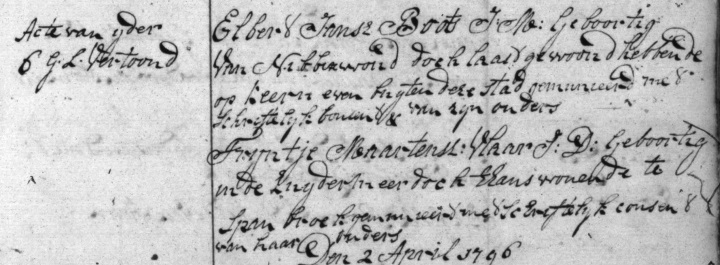 Acte van yder
6 G. L. Vertoond
Elbert Jansz Boot J: M: Geboortig
van Nibbixwoud doch laast gewoond hebbende
op Keern even buyten deze stad gemunieerd med
Schriftelyk van zyn ouders
Tryntje Maartensz: Vlaar J: D: Geboortig
in de Zuydermeer doch thans wonende te
Spanbroek gemunieerd med Schriftelyk consent
van haar ouders
Den 2 April 1796